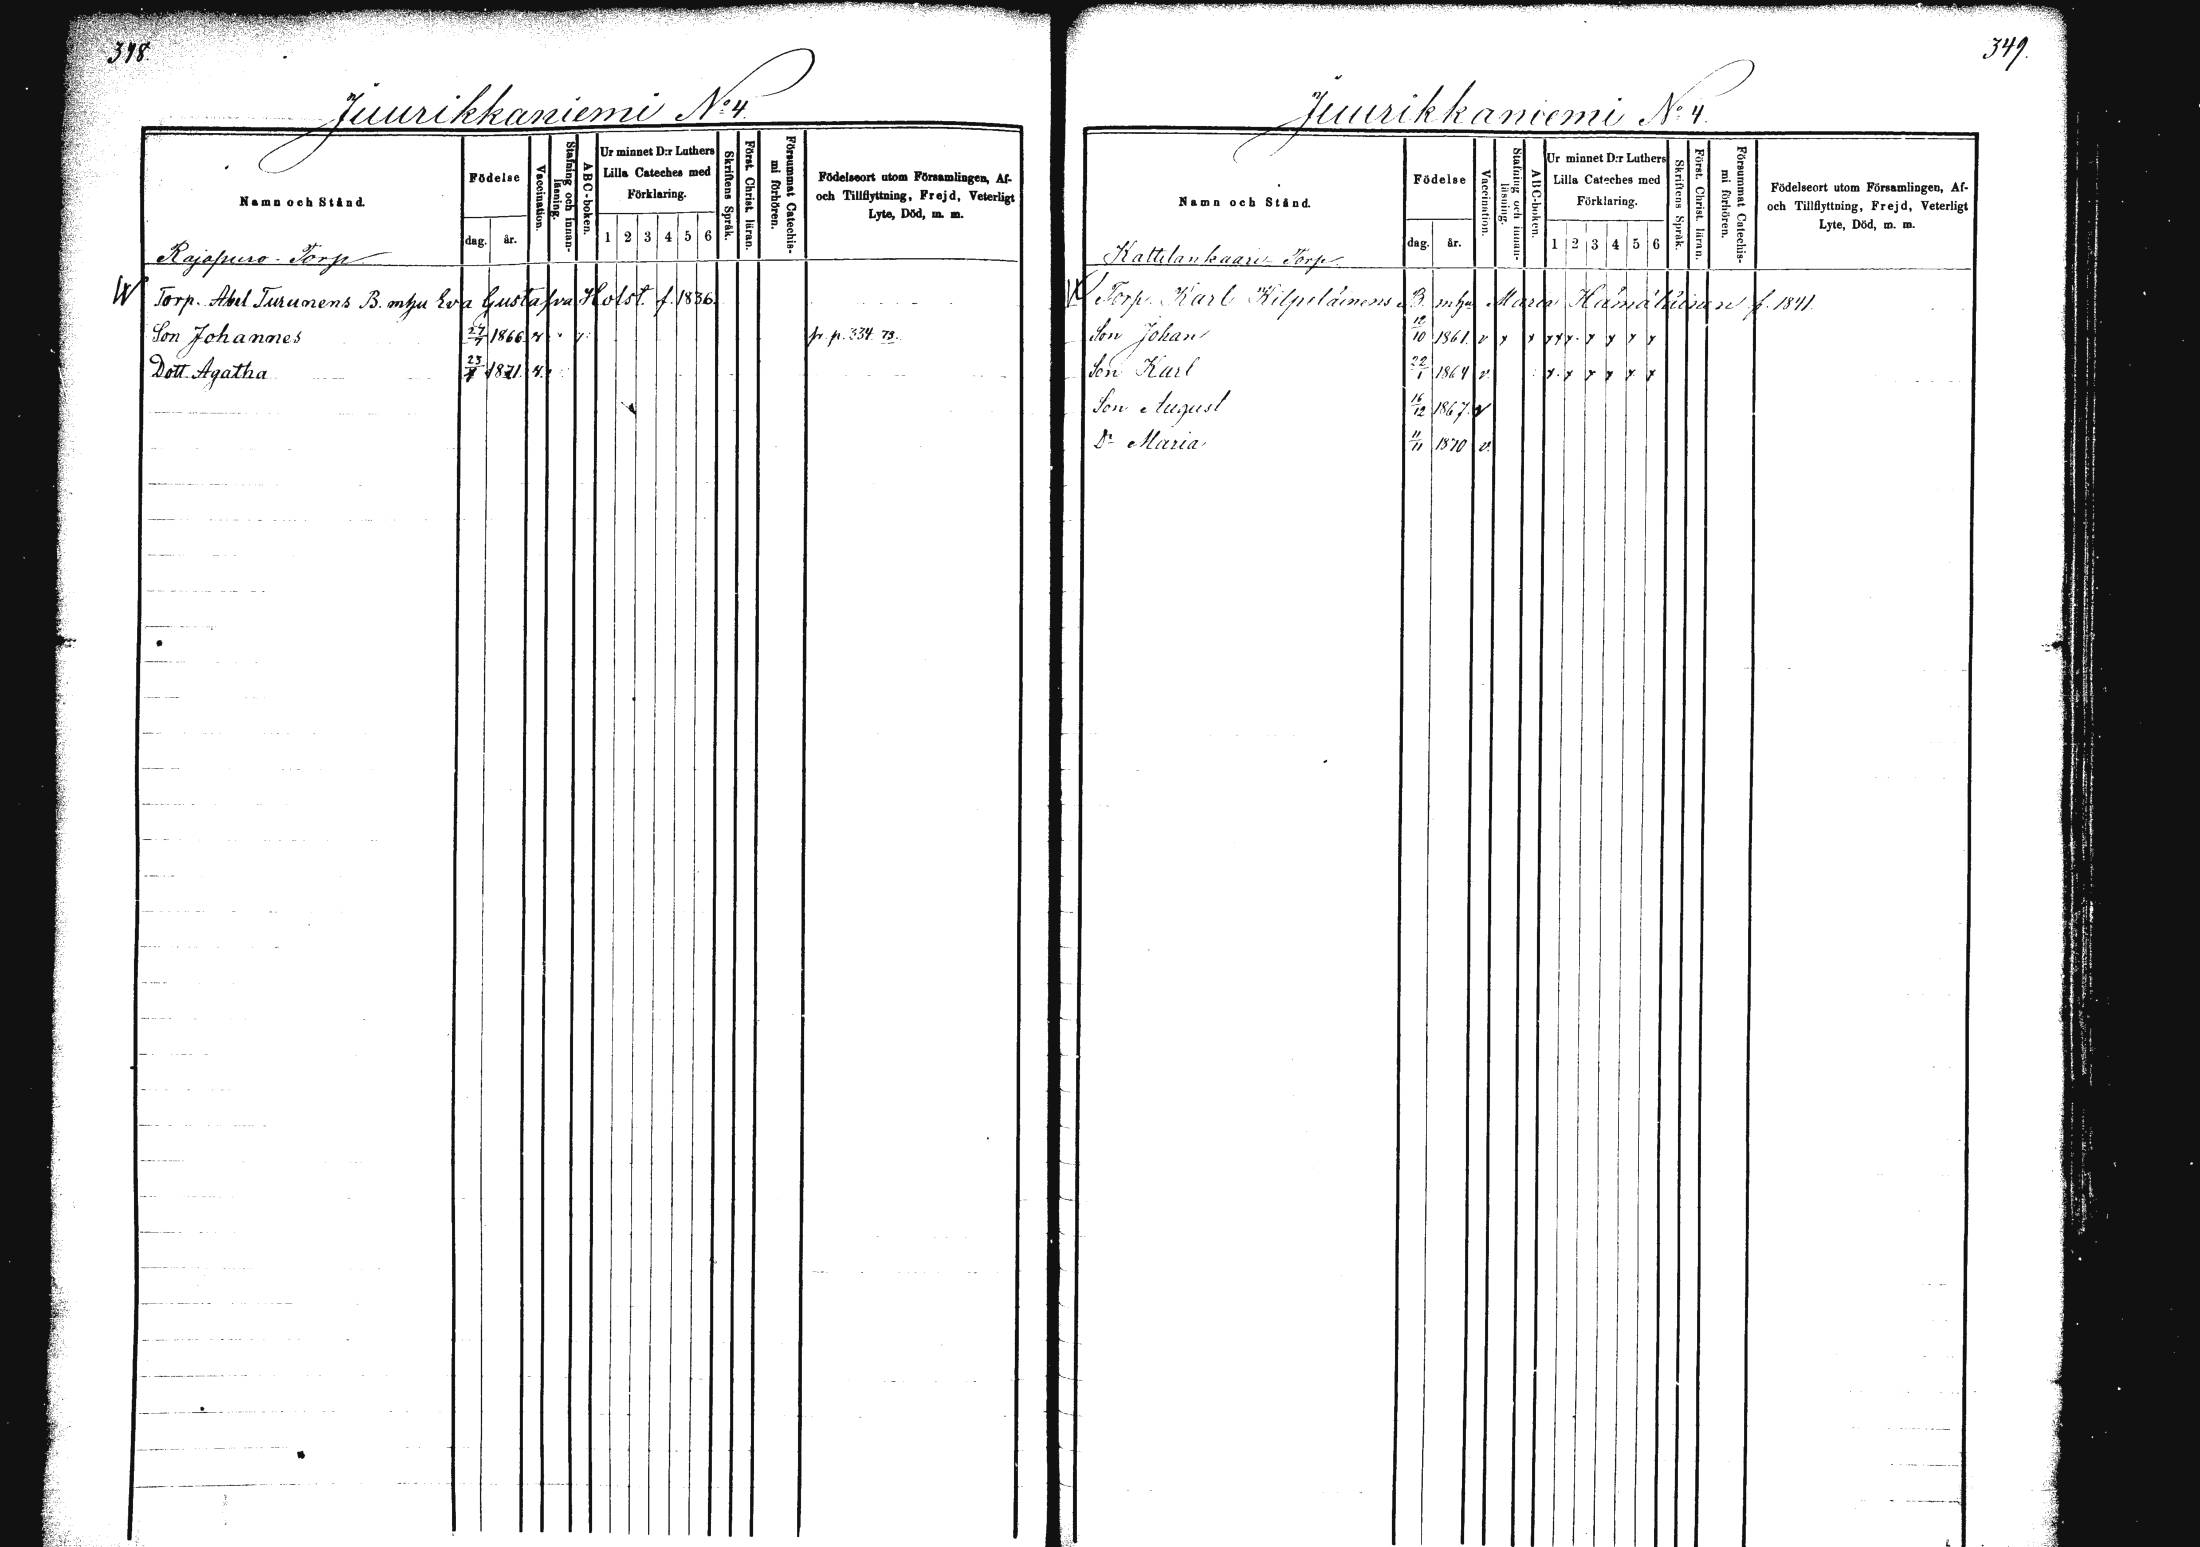 348.
Juurikkaniemi No 4.
Namn och Stånd.
Födelse
dag. år.
Vaccination.
Stafning och innan-
läsning.
ABC-boken.
Ur minnet D:r Luthers
Lilla Cateches med
Förklaring.
1 2 3 4 5 6
Skriftens Språk.
Först. Christ. läran.
Försummat Catechis-
mi förhören.
Födelseort utom Församlingen, Af-
och Tillflyttning, Frejd, Veterligt
Lyte, Död, m. m.
Rajapuro - Torp
Torp. Abel Turunens B. mhu Eva Gustafva Holst. f. 1836.
Son Johannes 27/7 1866 fr. p. 334 73.
Dott. Agatha 23/ 1871.
349.
Juurikkaniemi No 4.
Namn och Stånd.
Födelse
dag. år.
Vaccination.
Stafning och innan-
läsning.
ABC-boken.
Ur minnet D:r Luthers
Lilla Cateches med
Förklaring.
1 2 3 4 5 6
Skriftens Språk.
Först. Christ. läran.
Försummat Catechis-
mi förhören.
Födelseort utom Församlingen, Af-
och Tillflyttning, Frejd, Veterligt
Lyte, Död, m. m.
Kattilankaari Torp.
Torp. Karl Kilpeläinens B. mhu Maria Hämäläinen f. 1841.
Son Johan 12/10 1861. v x x x x x. x x x x
Son Karl 22/1 1864 v. x. x x x x x
Son August 16/12 1867. v
Dr Maria 11/11 1870 v.